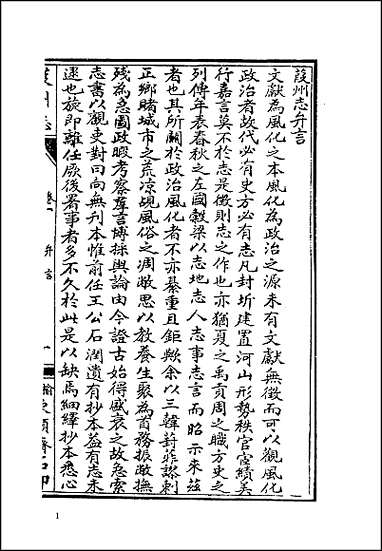 葭州志弁言
文獻為風化之本風化為政治之源未有文獻無徵而可以觀風化
政治者故代必有史方必有志凡封圻建置河山形勢秩官宦績美
行嘉言莫不於志是徵則志之作也亦猶夏之禹貢周之職方史之
列傳年表春秋之左國穀梁以志地志人志事志言而昭示來茲
者也其所關於政治風化者不亦綦重且鉅歟余以三韓葑菲謬刺
正鄉睹城市之荒凉覘風俗之凋敝思以教養生聚為首務振敝撫
殘為急圖政暇考察羣言博採輿論由今證古始得盛衰之故急索
志書以觀吏對曰向無刊本惟前任王公石潤遺有抄本蓋有志未
逮也旋即離任厥後署事者多不久於此是以缺焉細繹抄本悉心
葭州志
卷一
弁言
一
1